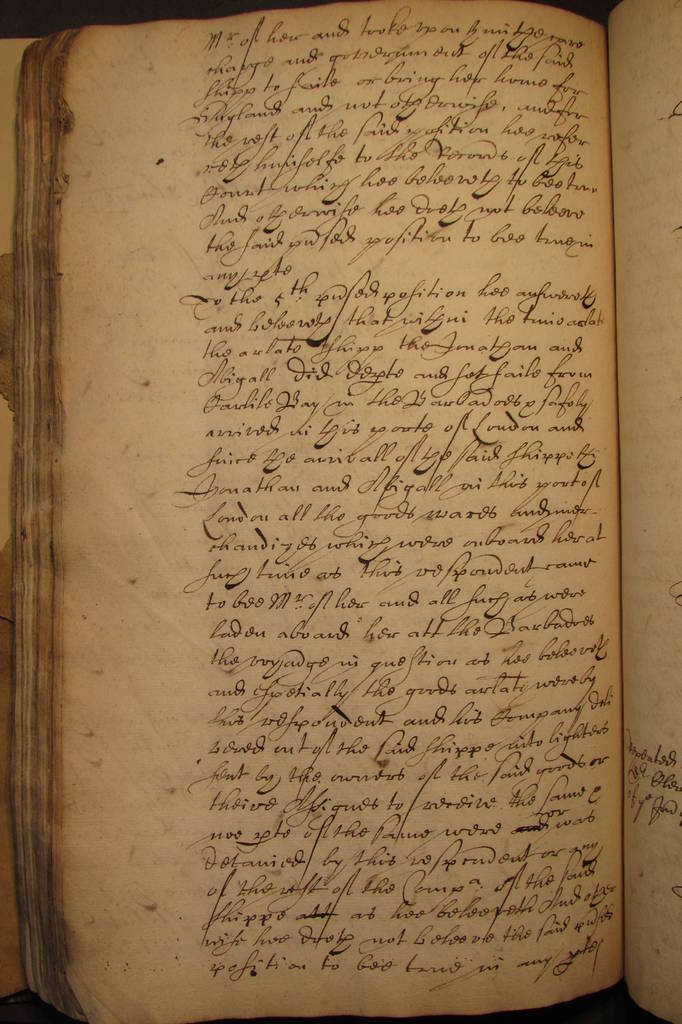 Mr of her and tooke upon him the care
charge and government of the said
shipp to saile or bring her home for
England and not otherwise, and for
the rest of the said position hee refer
reth himselfe to the Records of this
Court which hee beleeveth to bee true
And otherwise hee doth not beleeve
the said pred position to bee true in
any pte
To the 5th pred position hee answereth
and beleeveth that within the time arlate
the arlate shipp the Jonathan and
Abigall did depte and set saile from
Carlile Bay in the Barbadoes & safely
arrived in this porte of London and
since the arrivall of the said shippe the
Jonathan and Abigall in this port of
London all the goods wares and mer-
chandizes which were onboard her at
such time as this respondent came
to bee Mr of her and all such as were
laden aboard her att the Barbadoes
the voyadge in question as hee beleeveth
and spetially the goods arlate were by
this respondent and his Company deli
vered out of the said shippe into lighters
sent by the owners of the said goods or
theire Assignes to receive the same &
noe pte of the same were and or was
detained by this respondent or any
of the rest of the Compa: of the said
shippe att as hee beleeveth And other
wise hee doth not beleeve the said pred
position to bee true in any pte
repeated
of ye